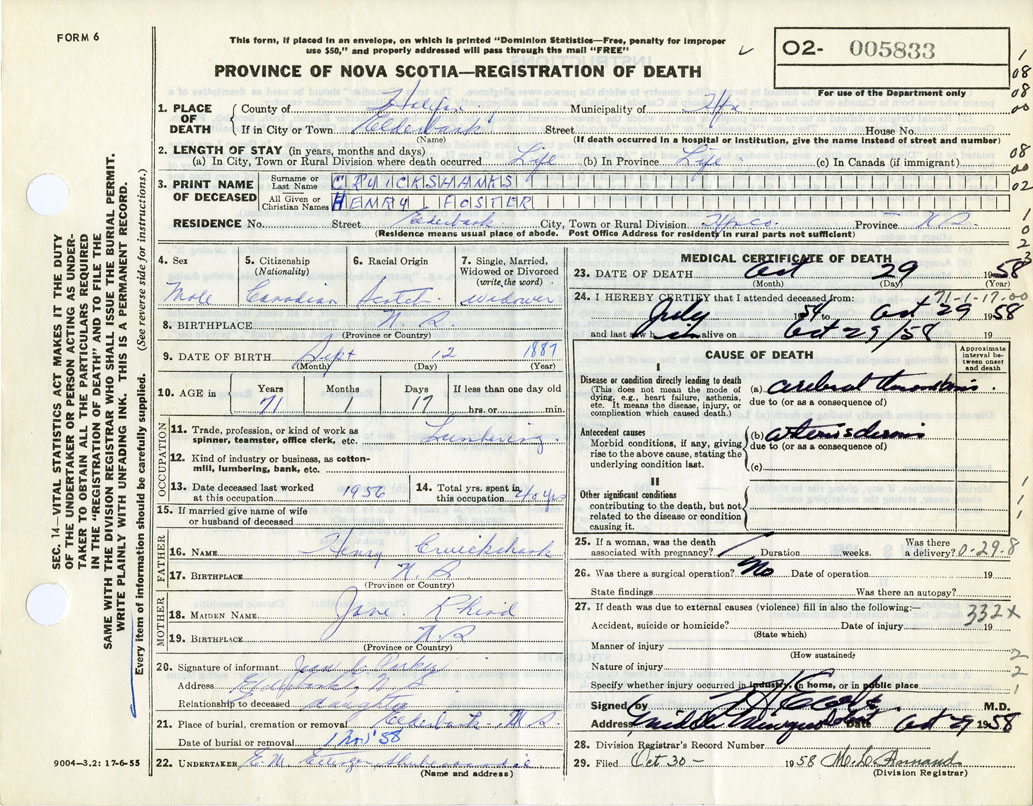 FORM 6
This form, if placed in an envelope, on which is printed "Dominion Statistics—Free, penalty for improper
use $50," and properly addressed will pass through the mail "FREE"
O2- 005833
For use of the Department only
PROVINCE OF NOVA SCOTIA—REGISTRATION OF DEATH
1. PLACE OF DEATH
County of Halifax Municipality of Hfx
If in City or Town Elderbank Street House No.
(Name) (If death occurred in a hospital or institution, give the name instead of street and number)
2. LENGTH OF STAY (in years, months and days)
(a) In City, Town or Rural Division where death occurred Life (b) In Province Life (c) In Canada (if immigrant)
3. PRINT NAME OF DECEASED
Surname or Last Name CRUICKSHANKS
All Given or Christian Names HENRY FOSTER
RESIDENCE No. Street Elderbank City, Town or Rural Division Hfx Co. Province N.S.
(Residence means usual place of abode. Post Office Address for residents in rural parts not sufficient)
4. Sex
Male
5. Citizenship
(Nationality)
Canadian
6. Racial Origin
Scotch
7. Single, Married,
Widowed or Divorced
(write the word)
widower
8. BIRTHPLACE N.S.
(Province or Country)
9. DATE OF BIRTH Sept 12 1887
(Month) (Day) (Year)
10. AGE in
Years 71
Months 1
Days 17
If less than one day old
hrs. or min.
OCCUPATION
11. Trade, profession, or kind of work as
spinner, teamster, office clerk, etc. Lumbering.
12. Kind of industry or business, as cotton-
mill, lumbering, bank, etc.
13. Date deceased last worked
at this occupation 1956
14. Total yrs. spent in
this occupation 40 yrs
15. If married give name of wife
or husband of deceased
FATHER
16. NAME Henry Cruickshank
17. BIRTHPLACE N.S.
(Province or Country)
MOTHER
18. MAIDEN NAME Jane Rhind
19. BIRTHPLACE N.S
(Province or Country)
20. Signature of informant Jean C.
Address Elderbank, N.S
Relationship to deceased daughter
21. Place of burial, cremation or removal Elderbank, N.S
Date of burial or removal 1 Nov '58
22. UNDERTAKER E.M. Shubenacadie
(Name and address)
MEDICAL CERTIFICATE OF DEATH
23. DATE OF DEATH Oct 29 1958
(Month) (Day)
71-1-17-00
24. I HEREBY CERTIFY that I attended deceased from:
July 1954 to Oct 29 1958
and last saw him alive on Oct 29/58 19
CAUSE OF DEATH
Approximate interval between onset and death
I
Disease or condition directly leading to death
(This does not mean the mode of
dying, e.g., heart failure, asthenia,
etc. It means the disease, injury, or
complication which caused death.)
(a) cerebral thrombosis
due to (or as a consequence of)
Antecedent causes
Morbid conditions, if any, giving
rise to the above cause, stating the
underlying condition last.
(b)
due to (or as a consequence of)
(c)
II
Other significant conditions
contributing to the death, but not
related to the disease or condition
causing it.
25. If a woman, was the death
associated with pregnancy? Duration weeks. Was there
a delivery? 0-29-8
26. Was there a surgical operation? No Date of operation 19
State findings Was there an autopsy?
27. If death was due to external causes (violence) fill in also the following:—
332X
Accident, suicide or homicide? Date of injury 19
(State which)
Manner of injury
(How sustained)
Nature of injury
Specify whether injury occurred in industry, in home, or in public place
Signed by M.D.
Address Middle Musquodoboit Date Oct 29 1958
28. Division Registrar's Record Number
29. Filed Oct 30- 1958
(Division Registrar)
SEC. 14—VITAL STATISTICS ACT MAKES IT THE DUTY
OF THE UNDERTAKER OR PERSON ACTING AS UNDER-
TAKER TO OBTAIN ALL THE PARTICULARS REQUIRED
IN THE "REGISTRATION OF DEATH" AND TO FILE THE
SAME WITH THE DIVISION REGISTRAR WHO SHALL ISSUE THE BURIAL PERMIT.
WRITE PLAINLY WITH UNFADING INK. THIS IS A PERMANENT RECORD.
Every item of information should be carefully supplied. (See reverse side for instructions.)
9004—3.2: 17-6-55